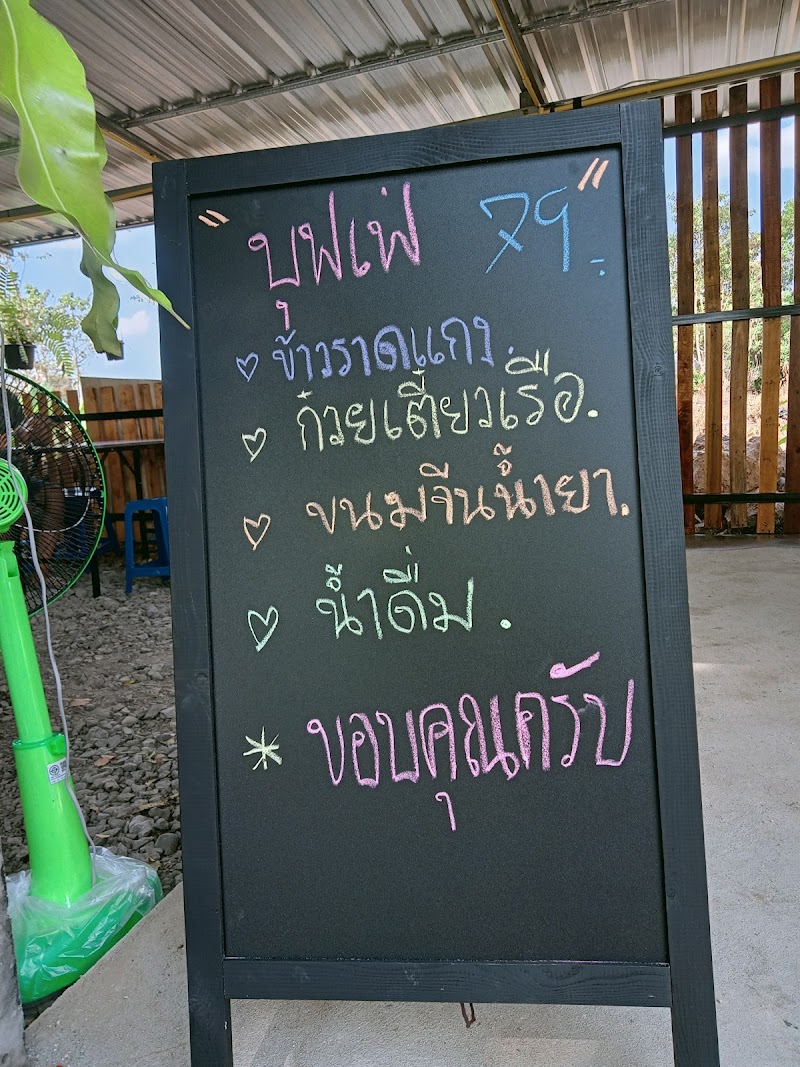 "บุฟเฟ่ 79.-"
♡ ข้าวราดแกง.
♡ ก๋วยเตี๋ยวเรือ.
♡ ขนมจีนน้ำยา.
♡ น้ำดื่ม.
* ขอบคุณครับ